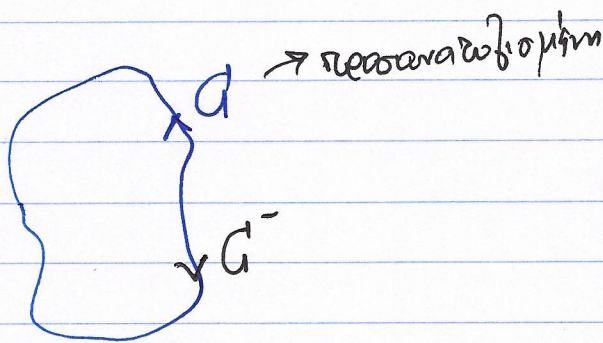 C → προσανατολισμένη
C⁻